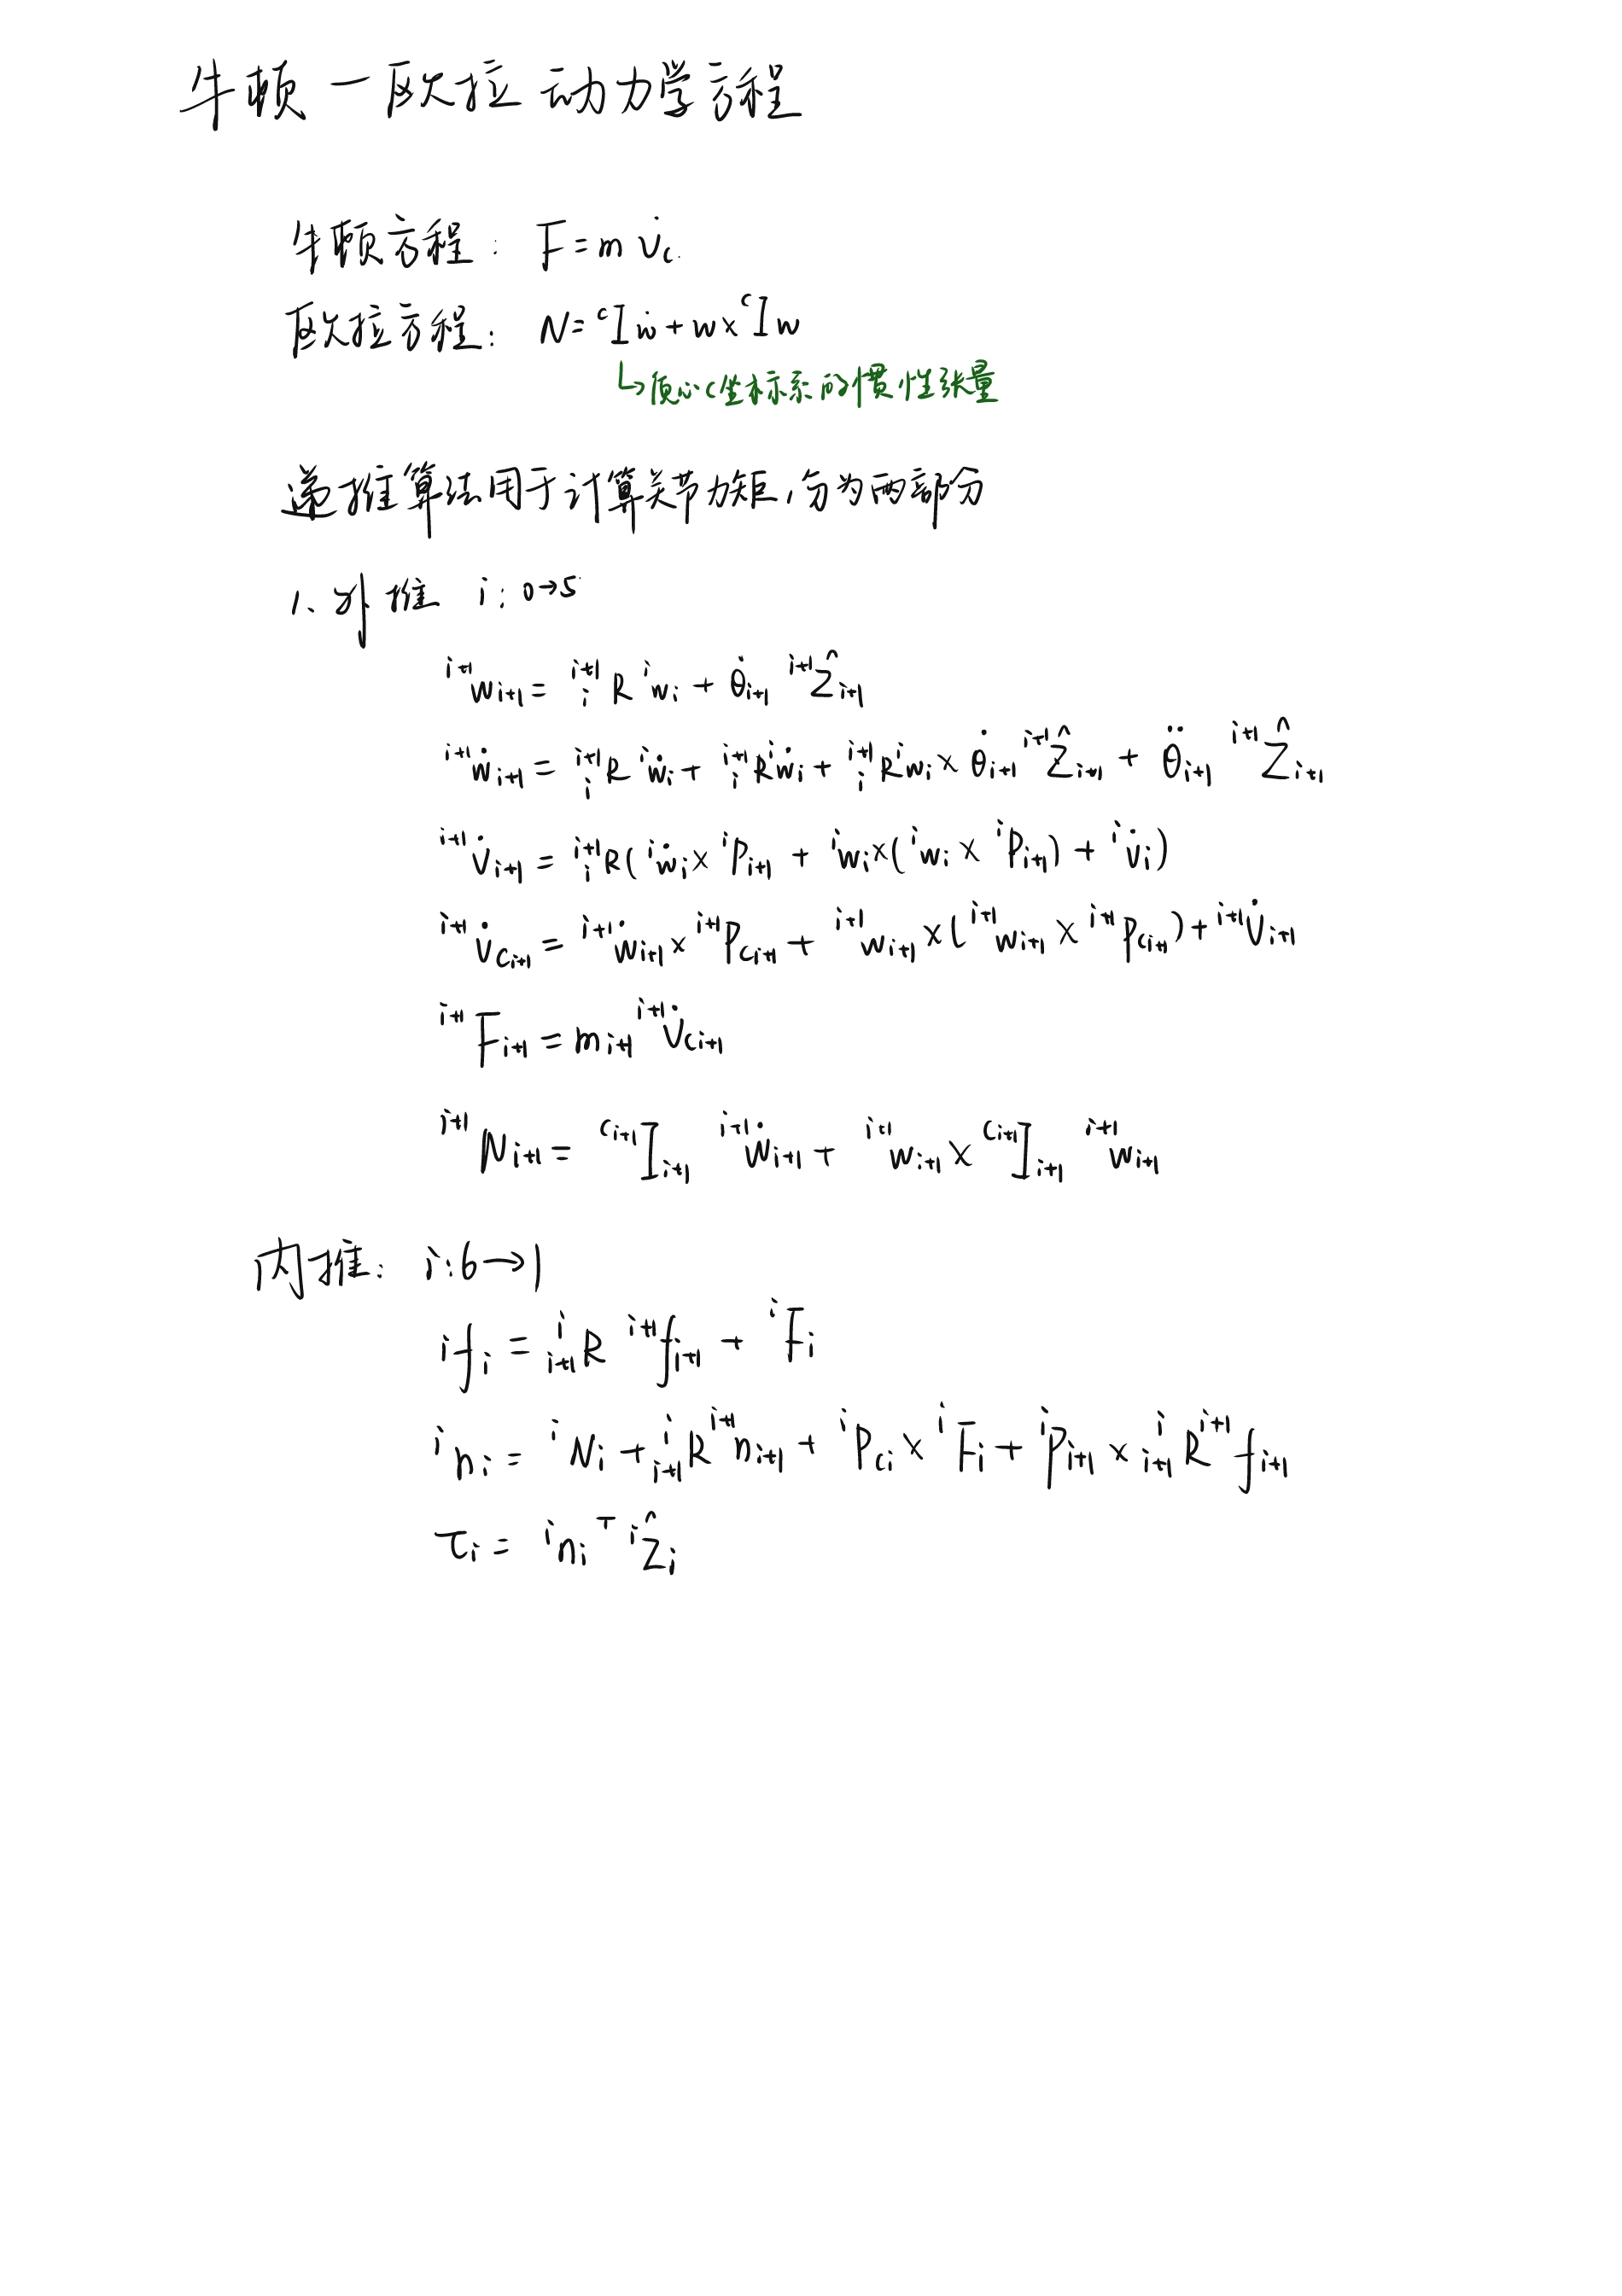 牛顿一欧拉动力学方程
牛顿方程: F = m v̇_c
欧拉方程: N = ^cI ẇ + w × ^cI w
↳质心C坐标系的惯性张量
递推算法用于计算关节力矩,分为两部分
1、外推 i: 0→5
^{i+1}w_{i+1} = ^{i+1}_iR ^iw_i + θ̇_{i+1} ^{i+1}Ẑ_{i+1}
^{i+1}ẇ_{i+1} = ^{i+1}_iR ^iẇ_i + ^{i+1}_iR ^iẇ_i + ^{i+1}_iR ^iw_i × θ̇_{i+1} ^{i+1}Ẑ_{i+1} + θ̈_{i+1} ^{i+1}Ẑ_{i+1}
^{i+1}v̇_{i+1} = ^{i+1}_iR(^iẇ_i × ^iP_{i+1} + ^iw_i × (^iw_i × ^iP_{i+1}) + ^iv̇_i)
^{i+1}v̇_{c_{i+1}} = ^{i+1}ẇ_{i+1} × ^{i+1}P_{c_{i+1}} + ^{i+1}w_{i+1} × (^{i+1}w_{i+1} × ^{i+1}P_{c_{i+1}}) + ^{i+1}v̇_{i+1}
^{i+1}F_{i+1} = m_{i+1} ^{i+1}v̇_{c_{i+1}}
^{i+1}N_{i+1} = ^{c_{i+1}}I_{i+1} ^{i+1}ẇ_{i+1} + ^{i+1}w_{i+1} × ^{c_{i+1}}I_{i+1} ^{i+1}w_{i+1}
内推: i: 6→1
^if_i = ^i_{i+1}R ^{i+1}f_{i+1} + ^iF_i
^in_i = ^iN_i + ^i_{i+1}R ^{i+1}n_{i+1} + ^iP_{c_i} × ^iF_i + ^iP_{i+1} × ^i_{i+1}R ^{i+1}f_{i+1}
τ_i = ^in_i^T ^iẐ_i